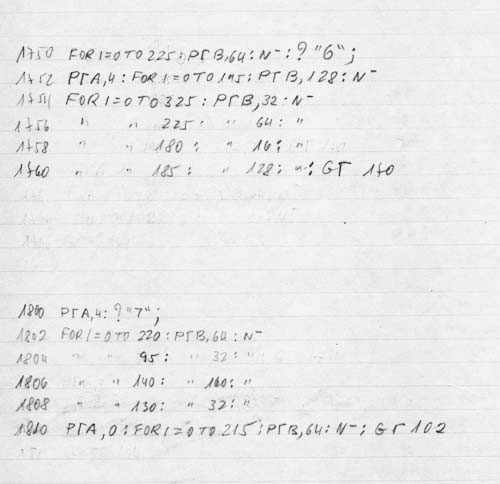 1750 FOR I=0 TO 225: PΓB,64: N⁻: ? "6";
1752 PΓA,4: FOR I=0 TO 195: PΓB,128: N⁻
1754 FOR I=0 TO 325: PΓB,32: N⁻
1756 " " 225: " 64: "
1758 " " 180: " 16: "
1760 " " 185: " 128: ": GΓ 170
1800 PΓA,4: ? "7";
1802 FOR I=0 TO 220: PΓB,64: N⁻
1804 " " 95: " 32: "
1806 " " 140: " 160: "
1808 " " 130: " 32: "
1810 PΓA,0: FOR I=0 TO 215: PΓB,64: N⁻: GΓ 102